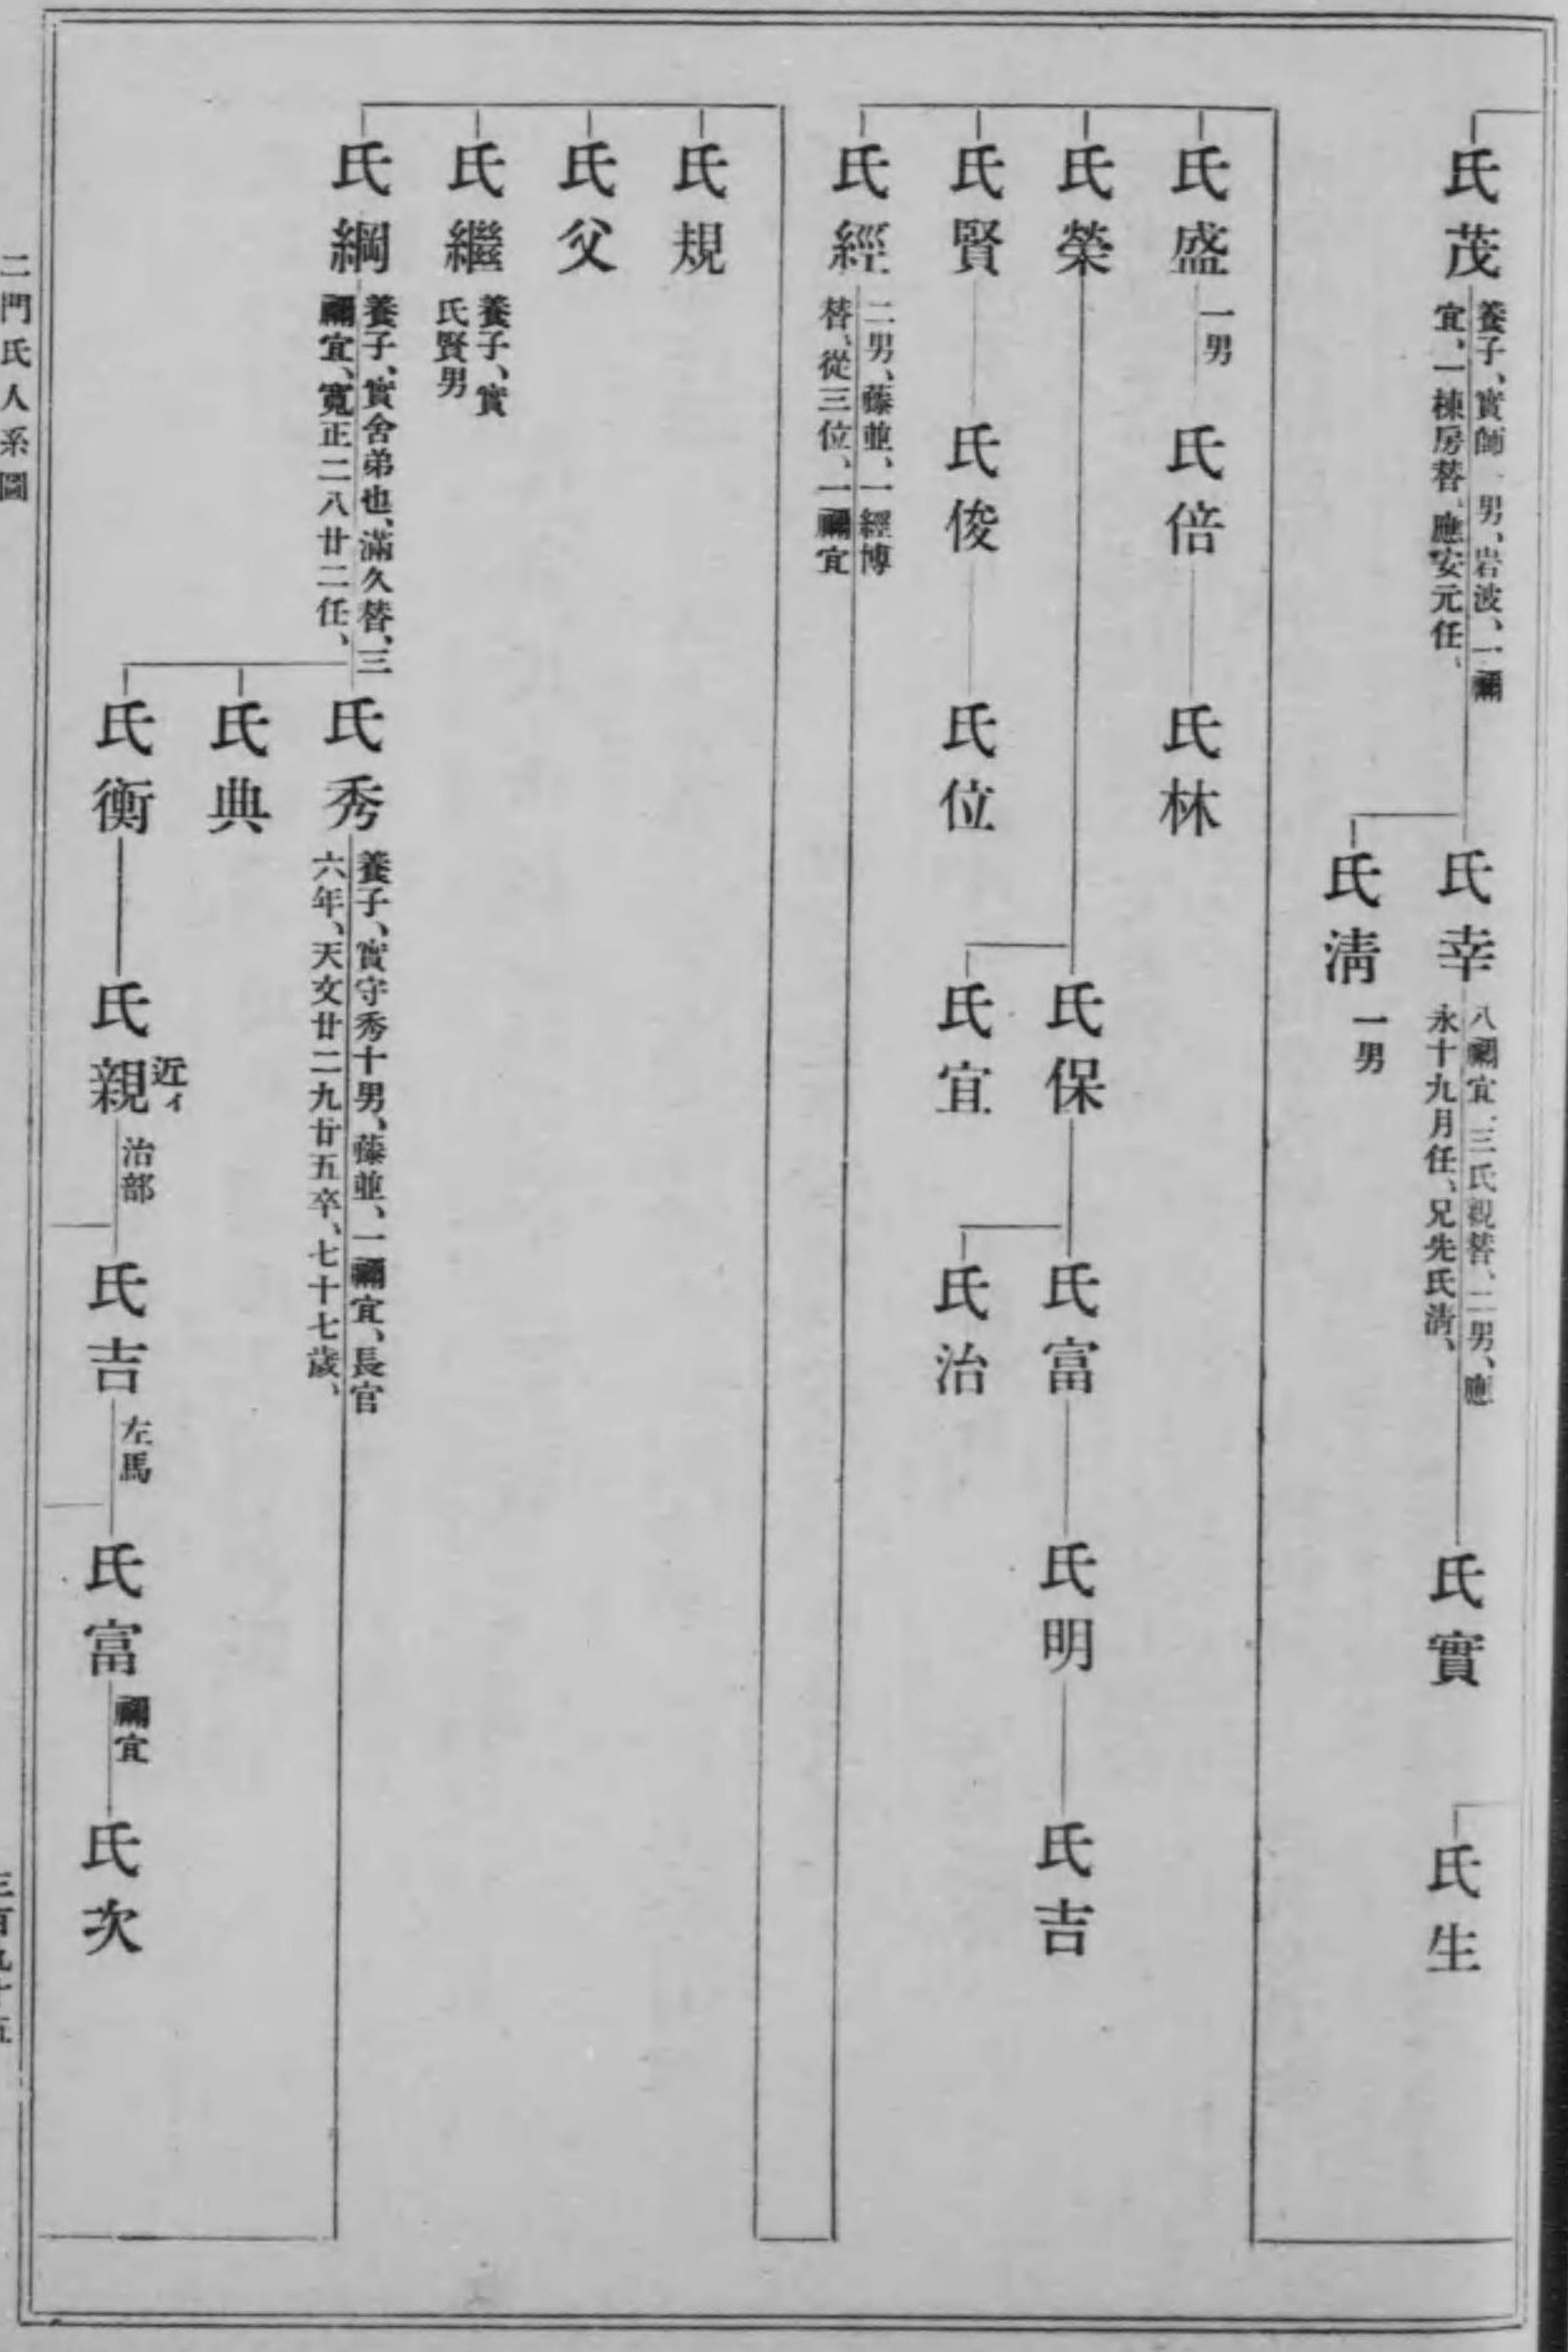 氏茂
養子、實師一男、岩波、一禰
宜、一棟房替、應安元任、
氏幸
八禰宜、三氏親替、二男、應
永十九月任、兄先氏淸、
氏實
氏生
氏淸
一男
氏盛
一男
氏倍
氏林
氏榮
氏保
氏富
氏明
氏吉
氏宜
氏治
氏賢
氏俊
氏位
氏經
二男、藤並、一經博
替、從三位、一禰宜
氏規
氏父
氏繼
養子、實
氏賢男
氏綱
養子、實舍弟也、滿久替、三
禰宜、寬正二八廿二任、
氏秀
養子、實守秀十男、藤並、一禰宜、長官
六年、天文廿二九廿五卒、七十七歲、
氏典
氏衡
氏親
近イ
治部
氏吉
左馬
氏富
禰宜
氏次
二門氏人系圖